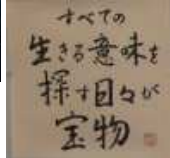 すべての
生きる意味を
探す日々が
宝物